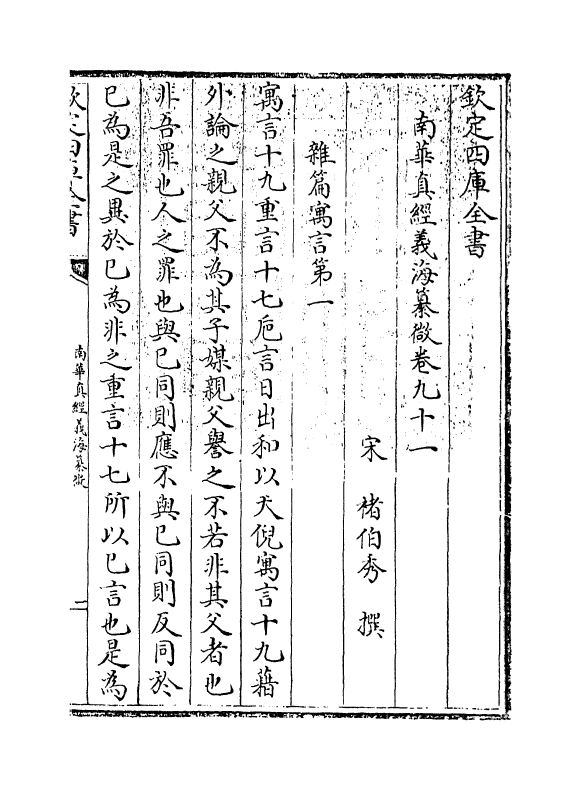 欽定四庫全書
南華真經義海纂微卷九十一
宋 褚伯秀 撰
雜篇寓言第一
寓言十九重言十七巵言日出和以天倪寓言十九藉
外論之親父不為其子媒親父譽之不若非其父者也
非吾罪也人之罪也與已同則應不與已同則反同於
已為是之異於已為非之重言十七所以已言也是為
欽定四庫全書
南華真經義海纂微